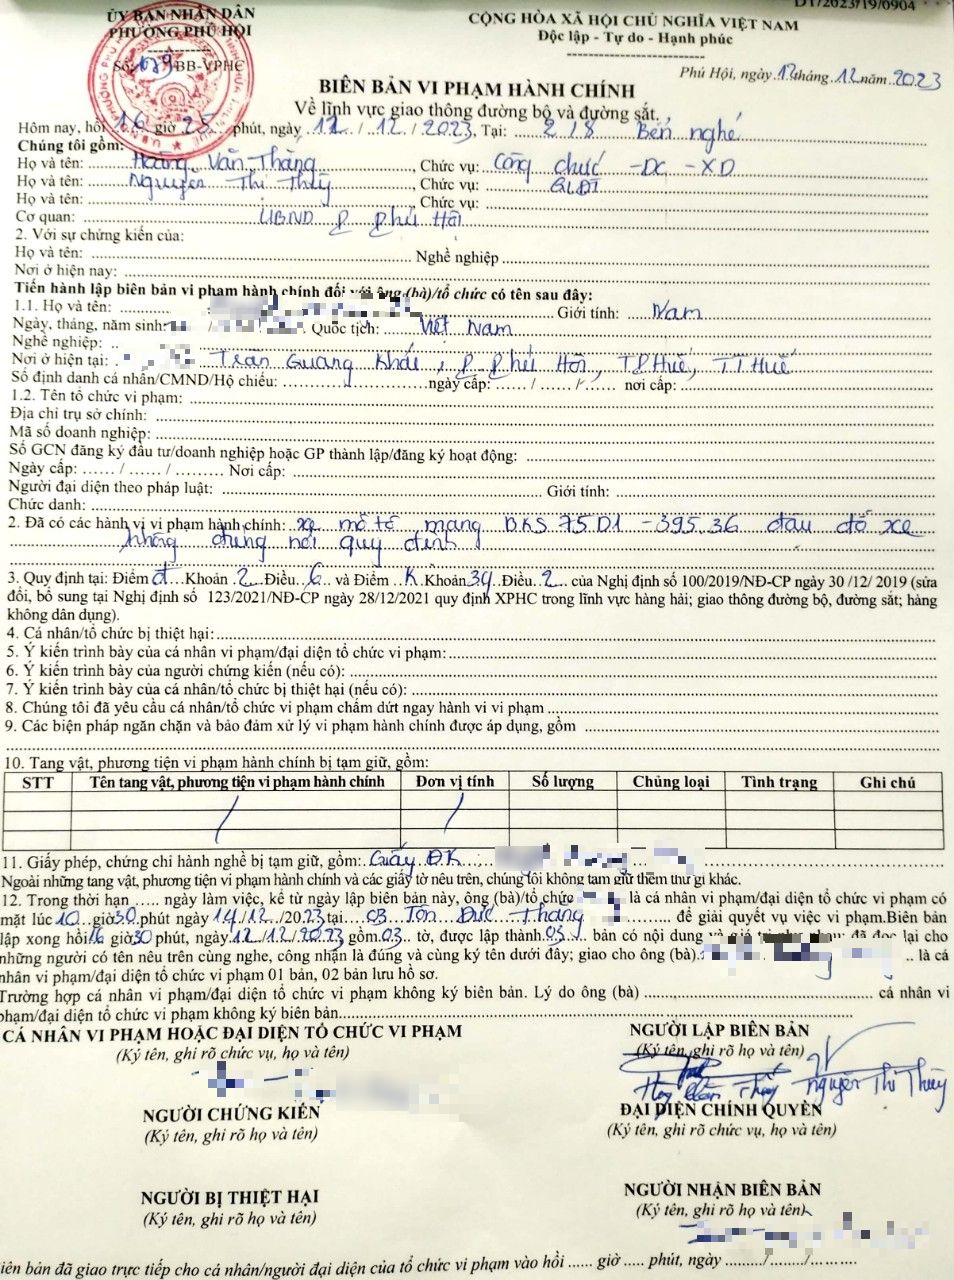 ĐT/2023/19/0904
ỦY BAN NHÂN DÂN
PHƯỜNG PHÚ HỘI
CỘNG HÒA XÃ HỘI CHỦ NGHĨA VIỆT NAM
Độc lập - Tự do - Hạnh phúc
Số: /BB-VPHC
Phú Hội, ngày 12 tháng 12 năm 2023
BIÊN BẢN VI PHẠM HÀNH CHÍNH
Về lĩnh vực giao thông đường bộ và đường sắt
Hôm nay, hồi 16 giờ 25 phút, ngày 12 / 12 / 2023, Tại: 218 Bến nghé
Chúng tôi gồm:
Họ và tên: Hoàng Văn Thắng, Chức vụ: Công chức -ĐC -XD
Họ và tên: Nguyễn Thị Thùy, Chức vụ: QLĐT
Họ và tên: , Chức vụ:
Cơ quan: UBND P. Phú Hội
2. Với sự chứng kiến của:
Họ và tên: Nghề nghiệp
Nơi ở hiện nay:
Tiến hành lập biên bản vi phạm hành chính đối với ông (bà)/tổ chức có tên sau đây:
1.1. Họ và tên: Giới tính: Nam
Ngày, tháng, năm sinh: Quốc tịch: Việt Nam
Nghề nghiệp:
Nơi ở hiện tại: Trần Quang Khải, P. Phú Hội, TP Huế, TT Huế
Số định danh cá nhân/CMND/Hộ chiếu: ngày cấp: / / nơi cấp:
1.2. Tên tổ chức vi phạm:
Địa chỉ trụ sở chính:
Mã số doanh nghiệp:
Số GCN đăng ký đầu tư/doanh nghiệp hoặc GP thành lập/đăng ký hoạt động:
Ngày cấp: / / Nơi cấp:
Người đại diện theo pháp luật: Giới tính:
Chức danh:
2. Đã có các hành vi vi phạm hành chính: xe mô tô mang BKS 75D1 -395.36 đậu đỗ xe
không đúng nơi quy định
3. Quy định tại: Điểm đ Khoản 2 Điều 6 và Điểm K Khoản 34 Điều 2 của Nghị định số 100/2019/NĐ-CP ngày 30 /12/ 2019 (sửa
đổi, bổ sung tại Nghị định số 123/2021/NĐ-CP ngày 28/12/2021 quy định XPHC trong lĩnh vực hàng hải; giao thông đường bộ, đường sắt; hàng
không dân dụng).
4. Cá nhân/tổ chức bị thiệt hại:
5. Ý kiến trình bày của cá nhân vi phạm/đại diện tổ chức vi phạm:
6. Ý kiến trình bày của người chứng kiến (nếu có):
7. Ý kiến trình bày của cá nhân/tổ chức bị thiệt hại (nếu có):
8. Chúng tôi đã yêu cầu cá nhân/tổ chức vi phạm chấm dứt ngay hành vi vi phạm
9. Các biện pháp ngăn chặn và bảo đảm xử lý vi phạm hành chính được áp dụng, gồm
10. Tang vật, phương tiện vi phạm hành chính bị tạm giữ, gồm:
STT Tên tang vật, phương tiện vi phạm hành chính Đơn vị tính Số lượng Chủng loại Tình trạng Ghi chú
11. Giấy phép, chứng chỉ hành nghề bị tạm giữ, gồm: Giấy ĐK
Ngoài những tang vật, phương tiện vi phạm hành chính và các giấy tờ nêu trên, chúng tôi không tạm giữ thêm thứ gì khác.
12. Trong thời hạn ..... ngày làm việc, kể từ ngày lập biên bản này, ông (bà)/tổ chức là cá nhân vi phạm/đại diện tổ chức vi phạm có
mặt lúc 10 giờ 30 phút ngày 14/12 /2023 tại 03 Tôn Đức Thắng để giải quyết vụ việc vi phạm.Biên bản
lập xong hồi 16 giờ 30 phút, ngày 12/12/2023, gồm 03 tờ, được lập thành 03 bản có nội dung và giá trị như nhau đã đọc lại cho
những người có tên nêu trên cùng nghe, công nhận là đúng và cùng ký tên dưới đây; giao cho ông (bà) là cá
nhân vi phạm/đại diện tổ chức vi phạm 01 bản, 02 bản lưu hồ sơ.
Trường hợp cá nhân vi phạm/đại diện tổ chức vi phạm không ký biên bản. Lý do ông (bà) cá nhân vi
phạm/đại diện tổ chức vi phạm không ký biên bản
CÁ NHÂN VI PHẠM HOẶC ĐẠI DIỆN TỔ CHỨC VI PHẠM
(Ký tên, ghi rõ chức vụ, họ và tên)
NGƯỜI LẬP BIÊN BẢN
(Ký tên, ghi rõ họ và tên)
Nguyễn Thị Thùy
NGƯỜI CHỨNG KIẾN
(Ký tên, ghi rõ họ và tên)
ĐẠI DIỆN CHÍNH QUYỀN
(Ký tên, ghi rõ chức vụ, họ và tên)
NGƯỜI BỊ THIỆT HẠI
(Ký tên, ghi rõ họ và tên)
NGƯỜI NHẬN BIÊN BẢN
(Ký tên, ghi rõ họ và tên)
iên bản đã giao trực tiếp cho cá nhân/người đại diện của tổ chức vi phạm vào hồi ...... giờ ..... phút, ngày ......../......./...........